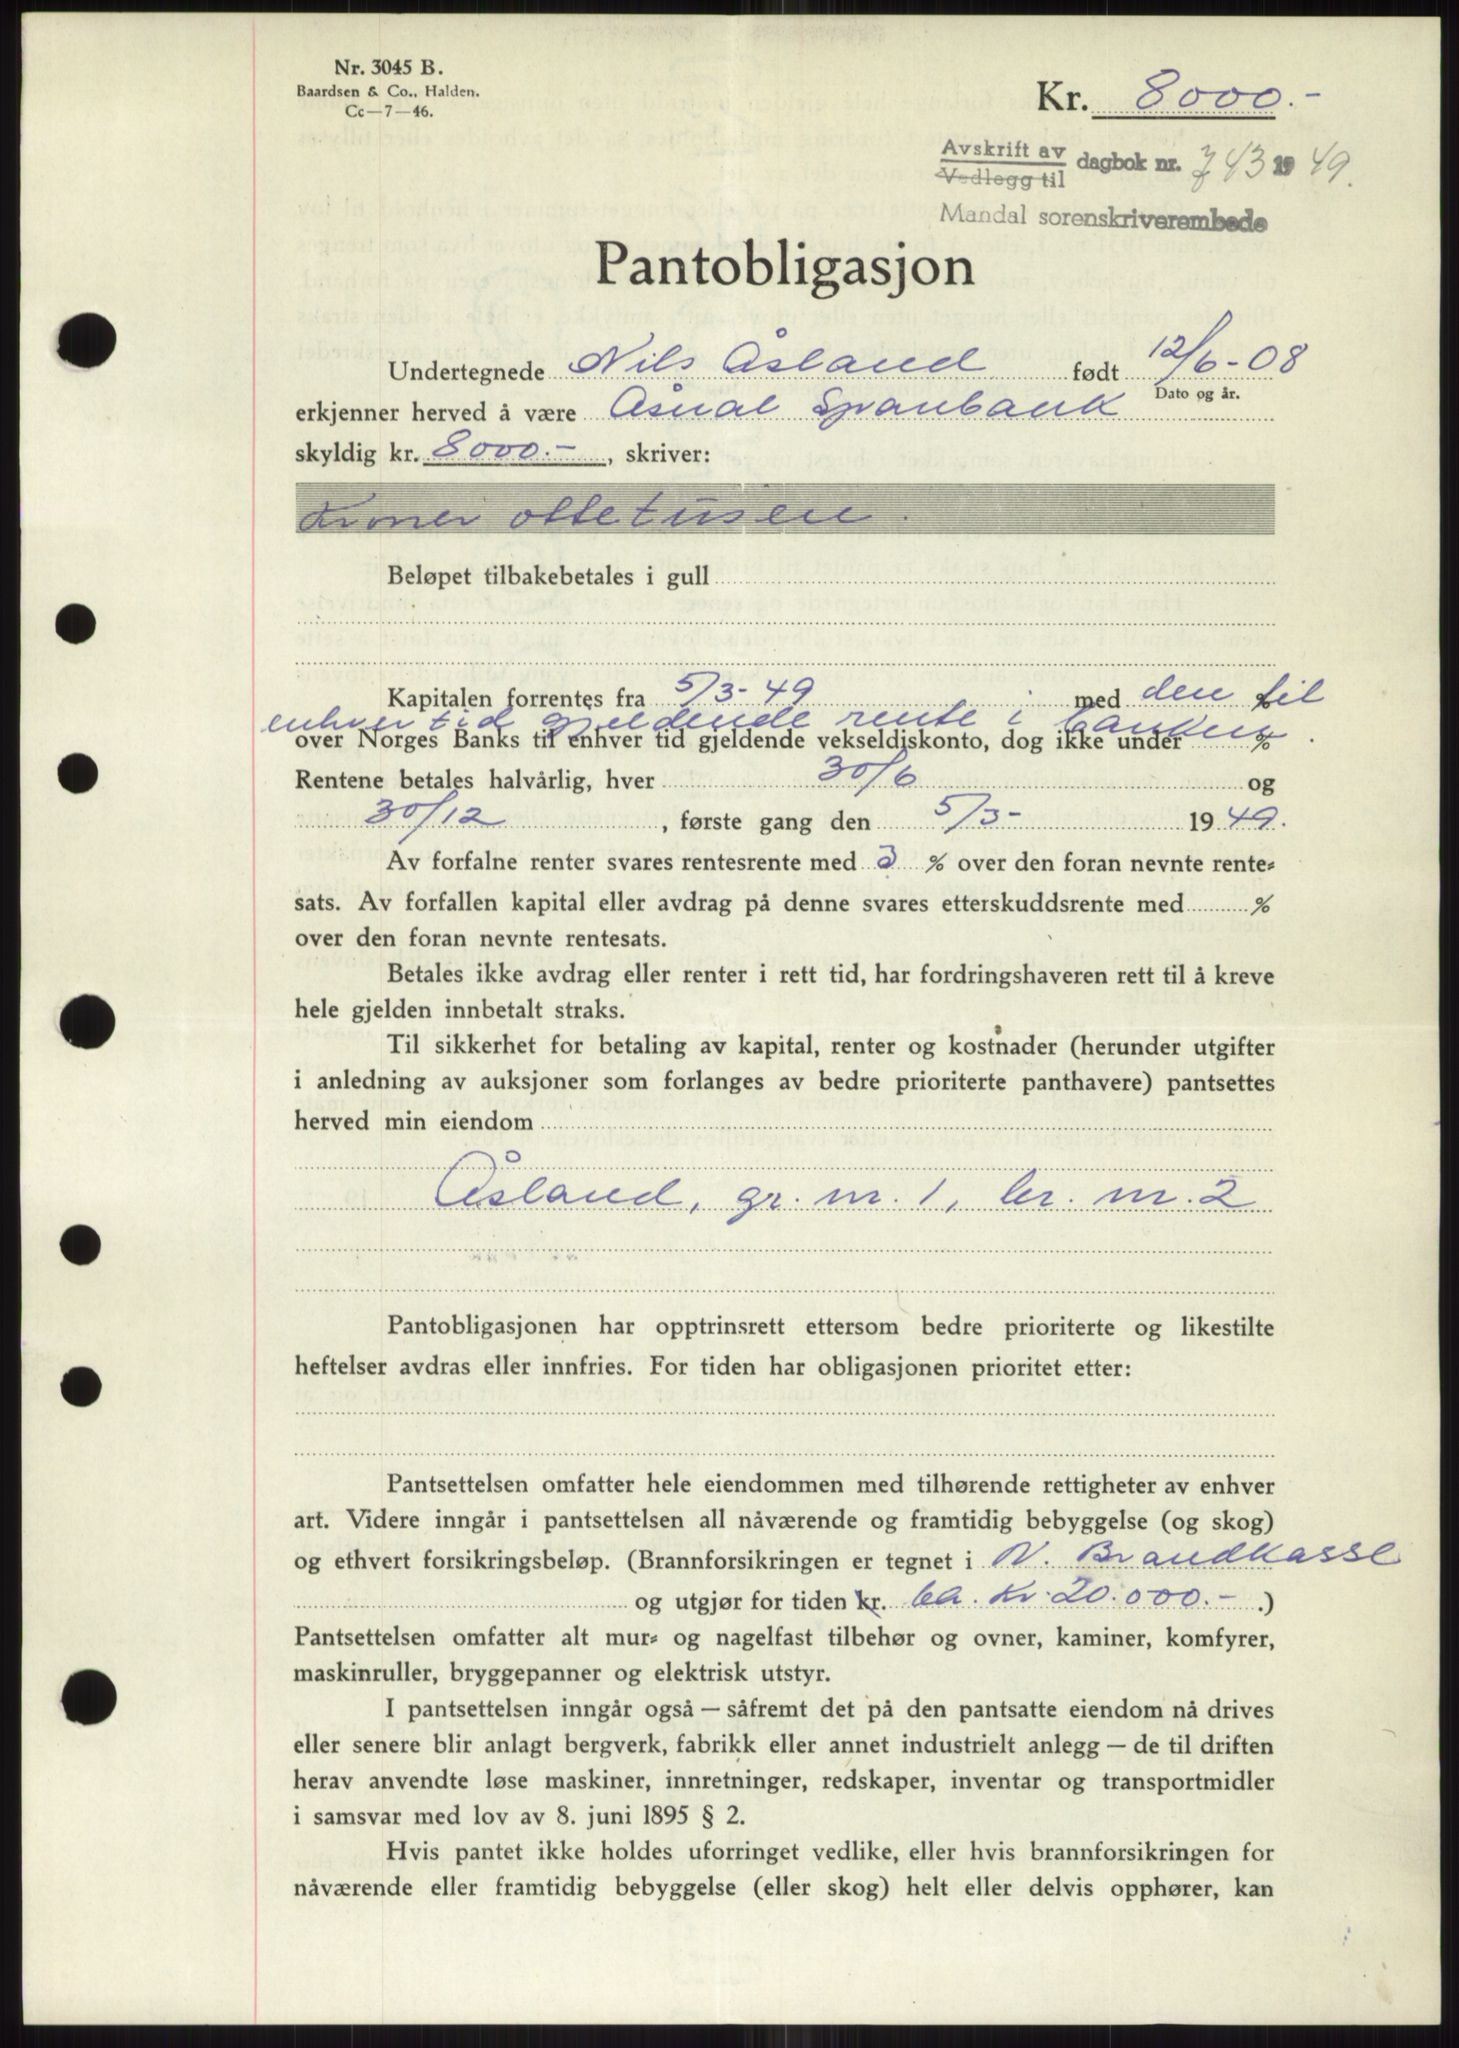 Nr. 3045 B.
Baardsen & Co., Halden.
Cc—7—46.
Kr. 8000.-
Avskrift av
Vedlegg til
dagbok nr. 743 1949.
Mandal sorenskriverembede
Pantobligasjon
Undertegnede Nils Åsland født 12/6-08
Dato og år.
erkjenner herved å være Åseral Sparebank
skyldig kr. 8000.-, skriver:
Kroner ottetusen.
Beløpet tilbakebetales i gull
Kapitalen forrentes fra 5/3-49 med den til %
enhver tid gjeldende rente i banken.
over Norges Banks til enhver tid gjeldende vekseldiskonto, dog ikke under %
Rentene betales halvårlig, hver 30/6 og
30/12, første gang den 5/3- 1949.
Av forfalne renter svares rentesrente med 3 % over den foran nevnte rente-
sats. Av forfallen kapital eller avdrag på denne svares etterskuddsrente med %
over den foran nevnte rentesats.
Betales ikke avdrag eller renter i rett tid, har fordringshaveren rett til å kreve
hele gjelden innbetalt straks.
Til sikkerhet for betaling av kapital, renter og kostnader (herunder utgifter
i anledning av auksjoner som forlanges av bedre prioriterte panthavere) pantsettes
herved min eiendom
Åsland, gr. nr. 1, br. nr. 2
Pantobligasjonen har opptrinsrett ettersom bedre prioriterte og likestilte
heftelser avdras eller innfries. For tiden har obligasjonen prioritet etter:
Pantsettelsen omfatter hele eiendommen med tilhørende rettigheter av enhver
art. Videre inngår i pantsettelsen all nåværende og framtidig bebyggelse (og skog)
og ethvert forsikringsbeløp. (Brannforsikringen er tegnet i N. Brandkasse
og utgjør for tiden kr. ca. Kr. 20.000.- .)
Pantsettelsen omfatter alt mur- og nagelfast tilbehør og ovner, kaminer, komfyrer,
maskinruller, bryggepanner og elektrisk utstyr.
I pantsettelsen inngår også — såfremt det på den pantsatte eiendom nå drives
eller senere blir anlagt bergverk, fabrikk eller annet industrielt anlegg — de til driften
herav anvendte løse maskiner, innretninger, redskaper, inventar og transportmidler
i samsvar med lov av 8. juni 1895 § 2.
Hvis pantet ikke holdes uforringet vedlike, eller hvis brannforsikringen for
nåværende eller framtidig bebyggelse (eller skog) helt eller delvis opphører, kan